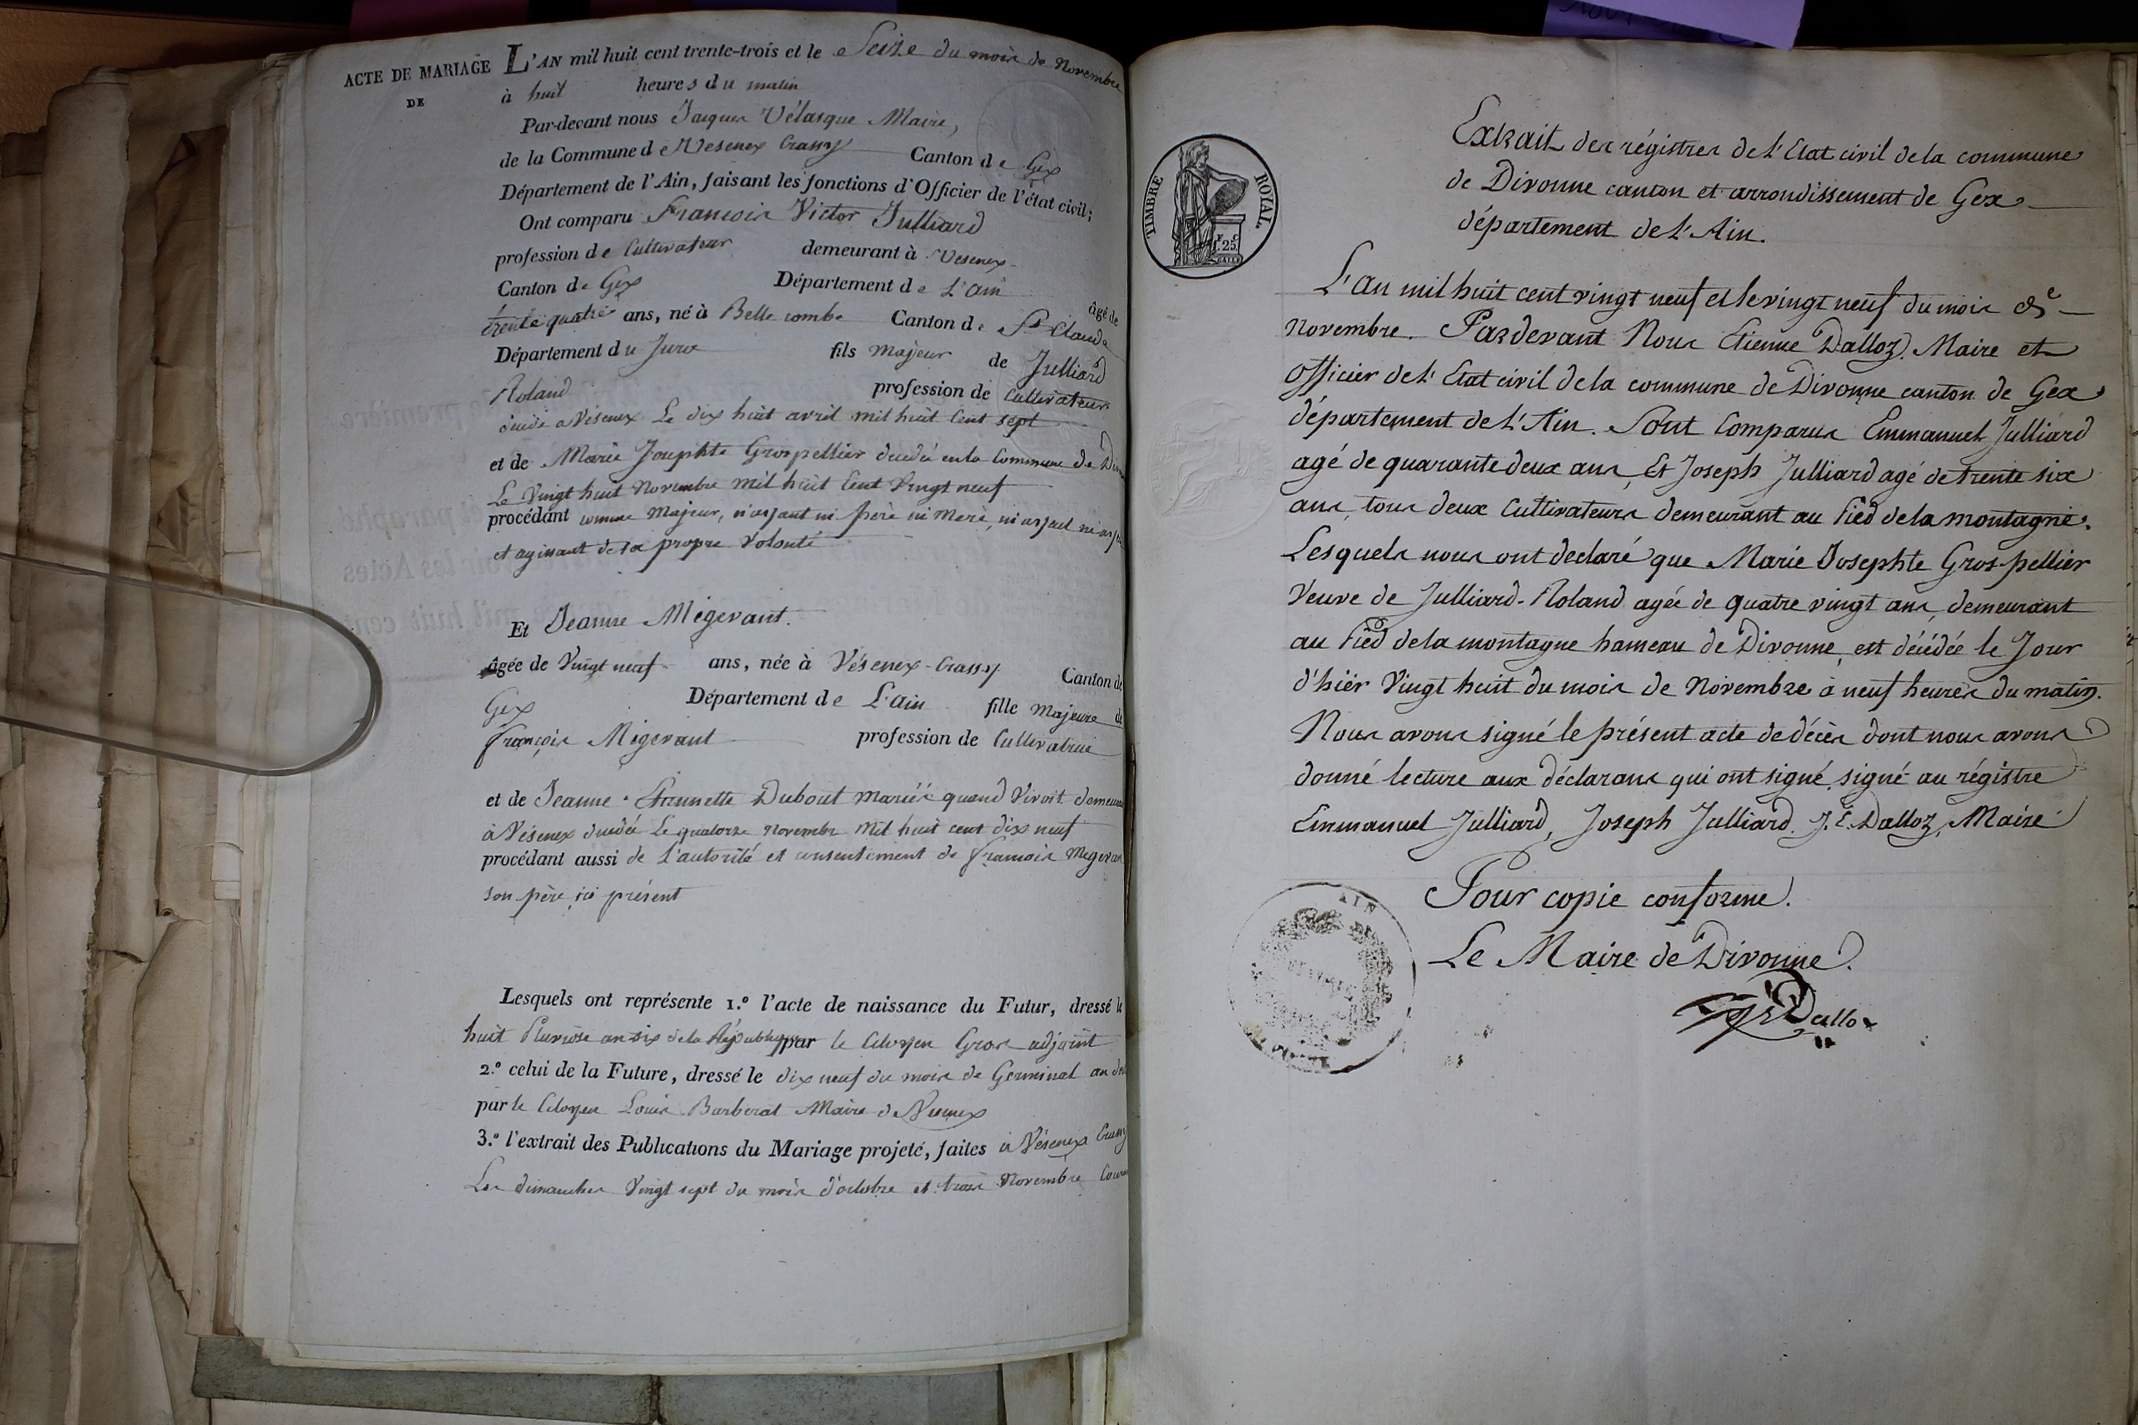 ACTE DE MARIAGE
DE
L'AN mil huit cent trente-trois et le Seize du mois de Novembre
à huit heures du matin
Par-devant nous Jacques Vélasque Maire,
de la Commune de Vesenex Crassy Canton de Gex
Département de l'Ain, faisant les fonctions d'Officier de l'état civil;
Ont comparu Francois Victor Julliard
profession de Cultivateur demeurant à Vesenex
Canton de Gex Département de L'ain âgé de
trente quatre ans, né à Belle combe Canton de St Claude
Département du Jura fils majeur de Julliard
Roland profession de Cultivateur
décédé a Vésenex Le dix huit avril mil huit Cent sept
et de Marie Josephte Grospellier décédée en la Commune de
Le Vingt huit Novembre mil huit Cent Vingt neuf
procédant comme Majeur, n'ayant ni père ni Mere, ni ayeul ni
et agissant de sa propre Volonté
Et Jeanne Mégevant.
âgée de Vingt neuf ans, née à Vésenex-Crassy Canton de
Gex Département de L'ain fille majeure de
françois Mégevant profession de Cultivatrice
et de Jeanne Etiennette Dubout mariés quand Vivoit
à Vésenex décédée Le quatorze novembre Mil huit cent dix neuf
procédant aussi de L'autorité et consentement de francois
son père ici présent
Lesquels ont représente 1.º l'acte de naissance du Futur, dressé le
huit Pluviose an six de la République par le Citoyen Gros adjoint
2.º celui de la Future, dressé le dix neuf du mois de Germinal an
par le Citoyen Louis Barberat Maire de Vesenex
3.º l'extrait des Publications du Mariage projeté, faites à Vésenex Crassy
Les dimanches Vingt sept du mois d'octobre et trois Novembre
TIMBRE ROYAL.
25
Extrait des régistres de L'Etat civil de la commune
de Divonne canton et arrondissement de Gex
département de L'Ain.
L'an mil huit cent vingt neuf et le vingt neuf du mois de
novembre. Pardevant Nous Etienne Dalloz, Maire et
officier de L'Etat civil de la commune de Divonne canton de Gex
département de L'Ain. Sont Comparus Emmanuel Julliard
agé de quarante deux ans, Et Joseph Julliard agé de trente six
ans, tous deux Cultivateurs demeurant au Pied de la montagne.
Lesquels nous ont declaré que Marie Josephte Gros-pellier
Veuve de Julliard-Roland agée de quatre vingt ans, demeurant
au Pied de la montagne hameau de Divonne, est décédée le Jour
d'hiér Vingt huit du mois de Novembre à neuf heures du matin.
Nous avons signé le présent acte de décès dont nous avons
donné lecture aux déclarans qui ont signé. signé au régistre
Emmanuel Julliard, Joseph Julliard, J. E. Dalloz, Maire
Pour copie conforme.
Le Maire de Divonne.
JEDalloz
AIN